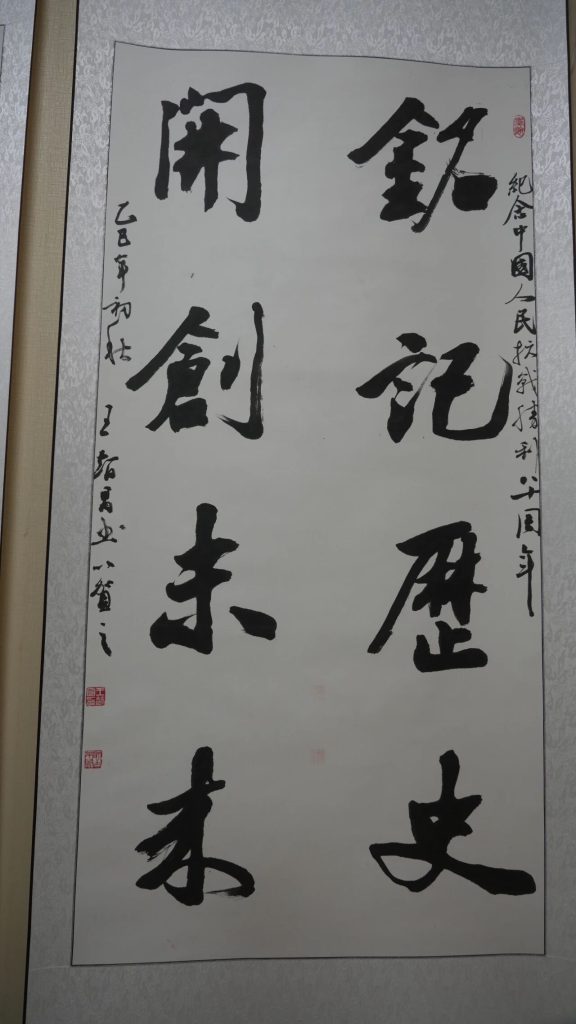 紀念中國人民抗戰勝利八十周年
銘記歷史
開創未来
乙巳年初秋 王書以賀之